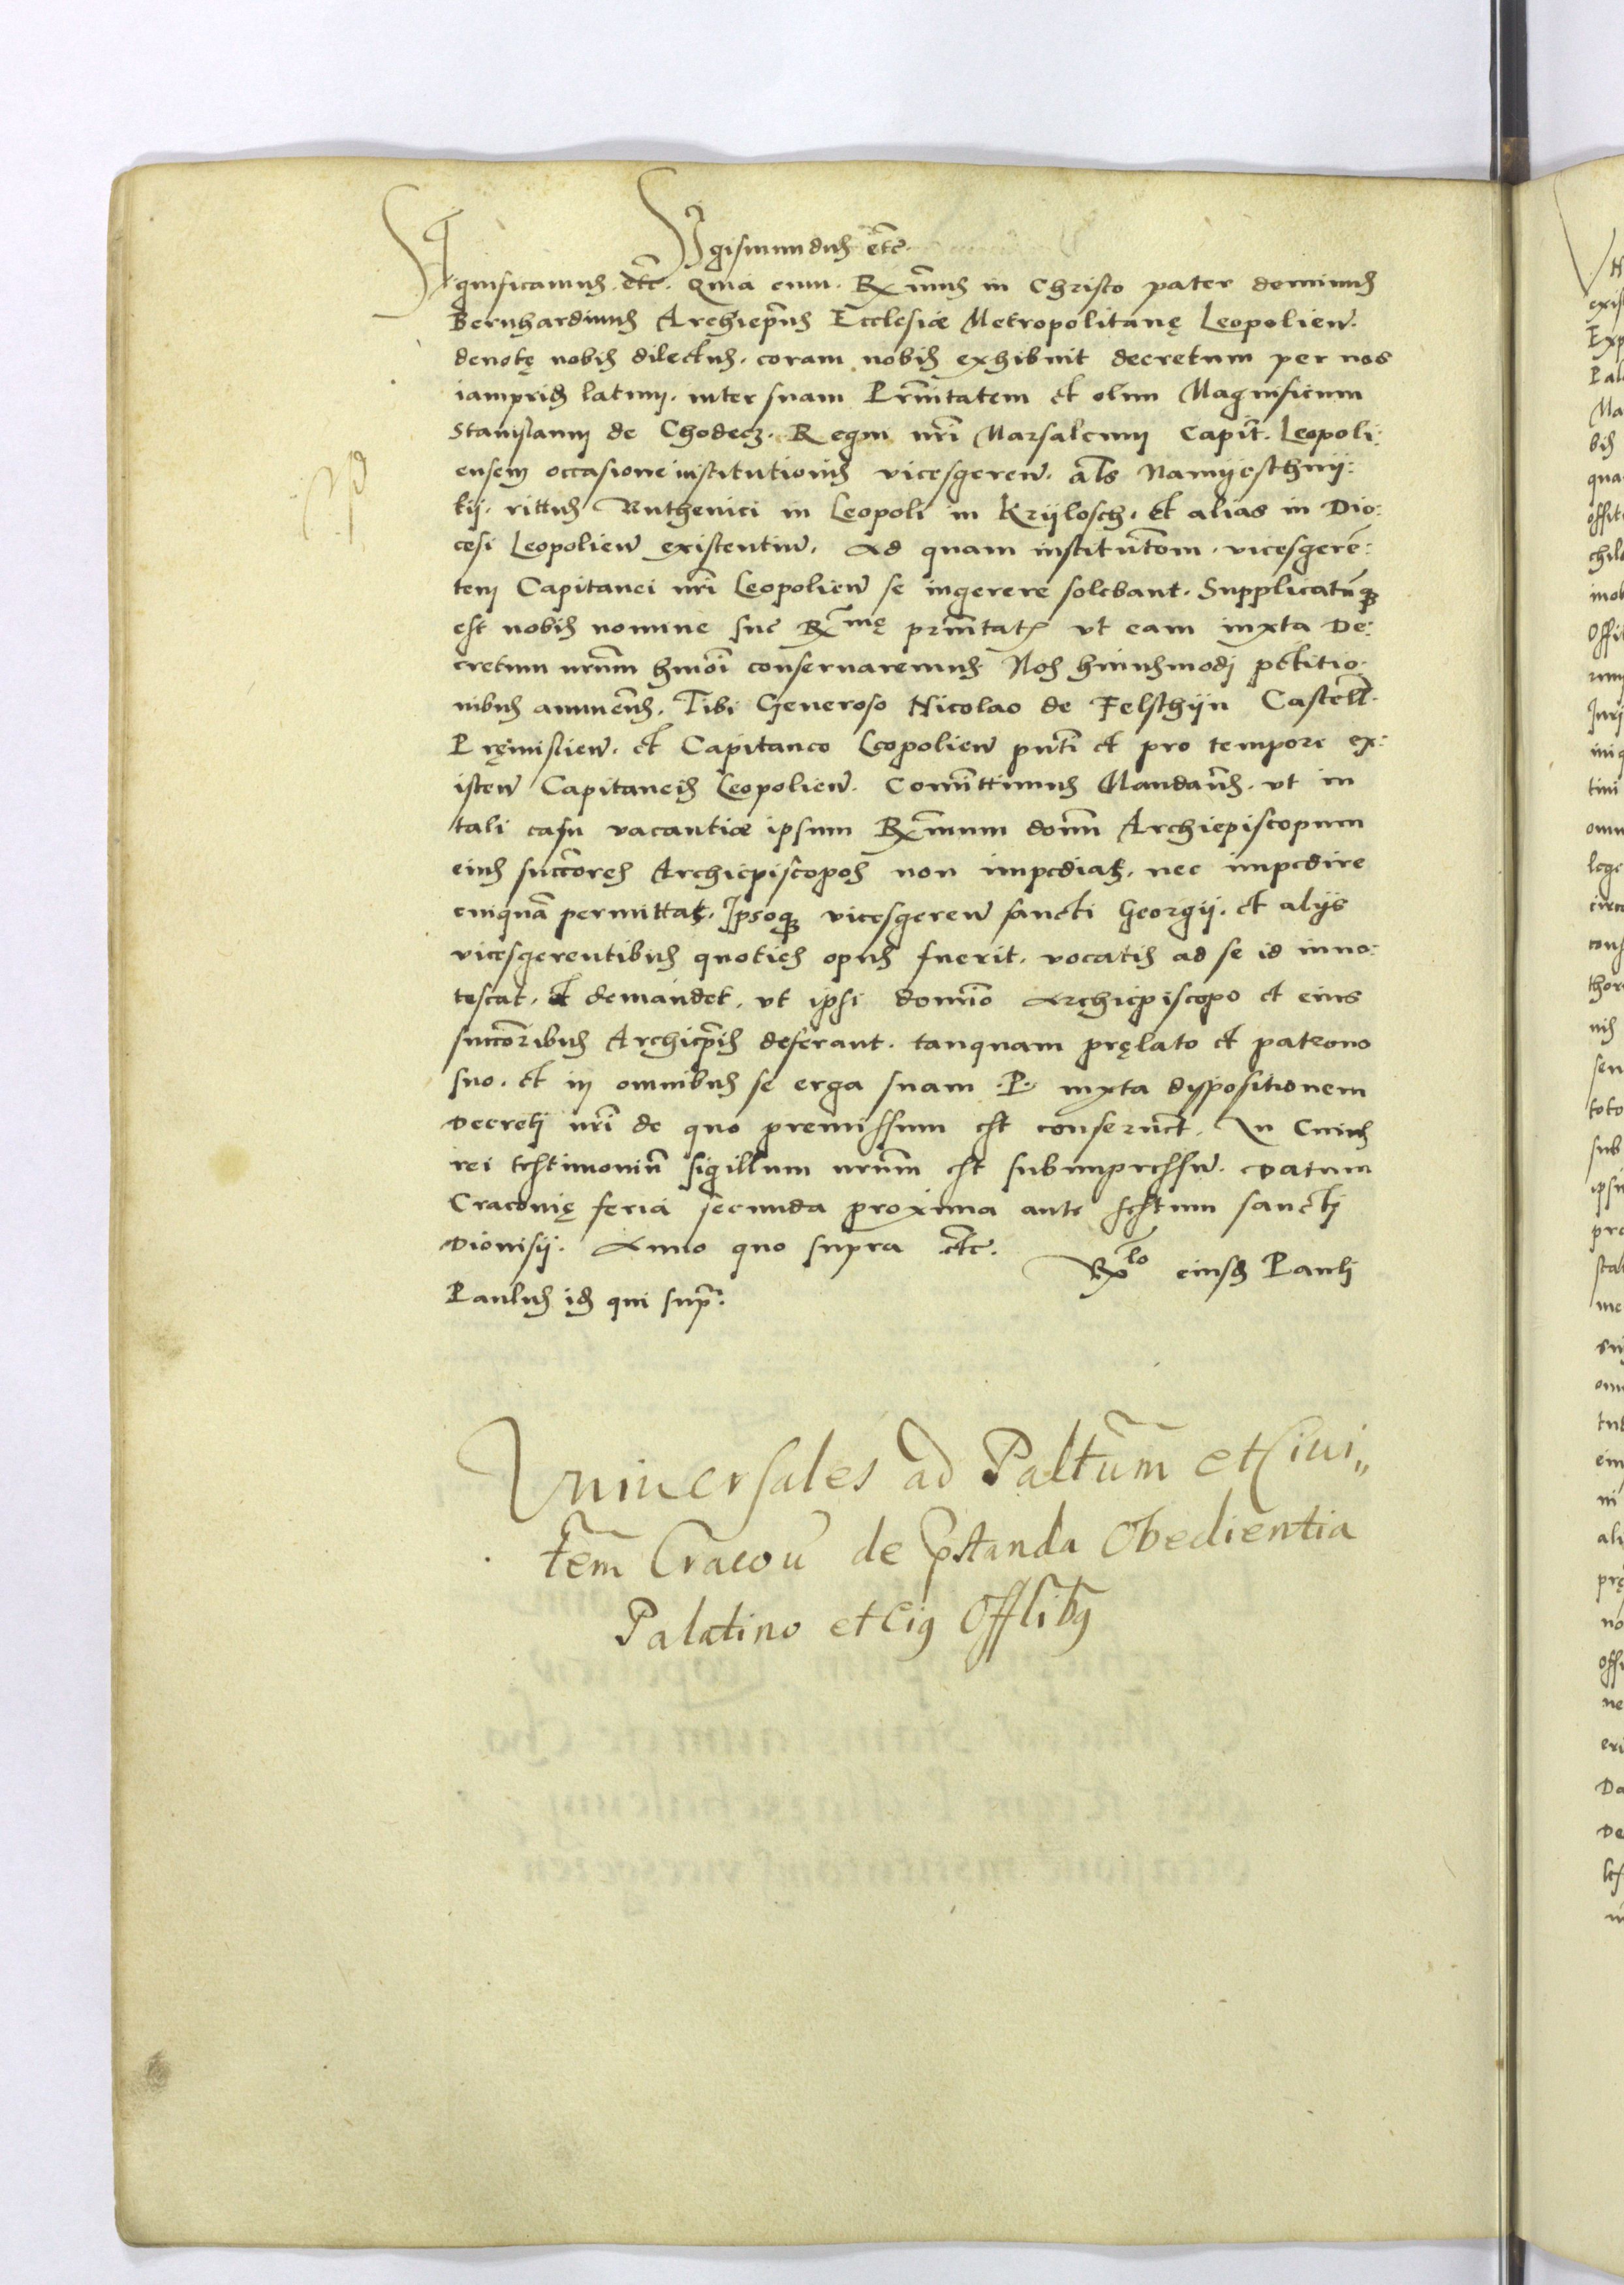 Sigismundus etc.
Significamus etc. Quia cum Rx̃mus in Christo pater dominus
Bernhardinus Archiepũs Ecclesiæ Metropolitanę Leopolieñ.
deuotę nobis dilectus. coram nobis exhibuit decretum per nos
iampridẽ latum. inter suam Prñitatem et olim Magnificum
Stanislaum de Chodecz. Regni nr̃i Marsalcum Capit̃. Leopoli:
ensem occasione institutionis vicesgereñ. al̃s Namyesthnij:
kij. rittus Ruthenici in Leopoli in Krylosch. et alias in Dio:
cesi Leopolieñ existentiũ. Ad quam institutõm. vicesgerẽ:
tem Capitanei nr̃i Leopolieñ se ingerere solebant. Supplicatũq̃
est nobis nomine sue Rx̃mę prñitatis vt eam iuxta De:
cretum nr̃um hm̃oi conseruaremus Nos huiusmodi petitio
nibus annuẽtes. Tibi Generoso Nicolao de Felsthyn Castell̃.
Pręmislieñ. et Capitaneo Leopolieñ pñti et pro tempore ex:
isteñ Capitaneis Leopolieñ. Comittimus Mandam̃s. vt in
tali casu vacantiæ ipsum Rx̃mum dom̃ Archiepiscopum
eius succ̃ores Archiepiscopos non impediatis. nec impedire
cuiquã permittatis. Ipsoq̃ vicesgereñ sancti Georgij. et alijs
vicesgerentibus quoties opus fuerit. vocatis ad se id inno:
tescat. et demandet. vt ipsi domĩo Archiepiscopo et eius
succ̃oribus Archiep̃is deferant. tanquam pręlato et patrono
suo. et in omnibus se erga suam .P. iuxta dyspositionem
Decreti nr̃i de quo premissum est conseruẽt. In Cuius
rei testimoniũ sigillum nr̃um est subimpressũ. Datum
Cracouię feria secunda proxima ante festum sancti
Dionisij. Anno quo supra etc.
Rx^lo eiusdẽ Pauli
Paulus idẽ qui supr̃.
Vniuersales ad Paltũm et Ciui„
tẽm Cracoũ de p̃standa Obedientia
Palatino et Eiꝯ Offlibꝯ